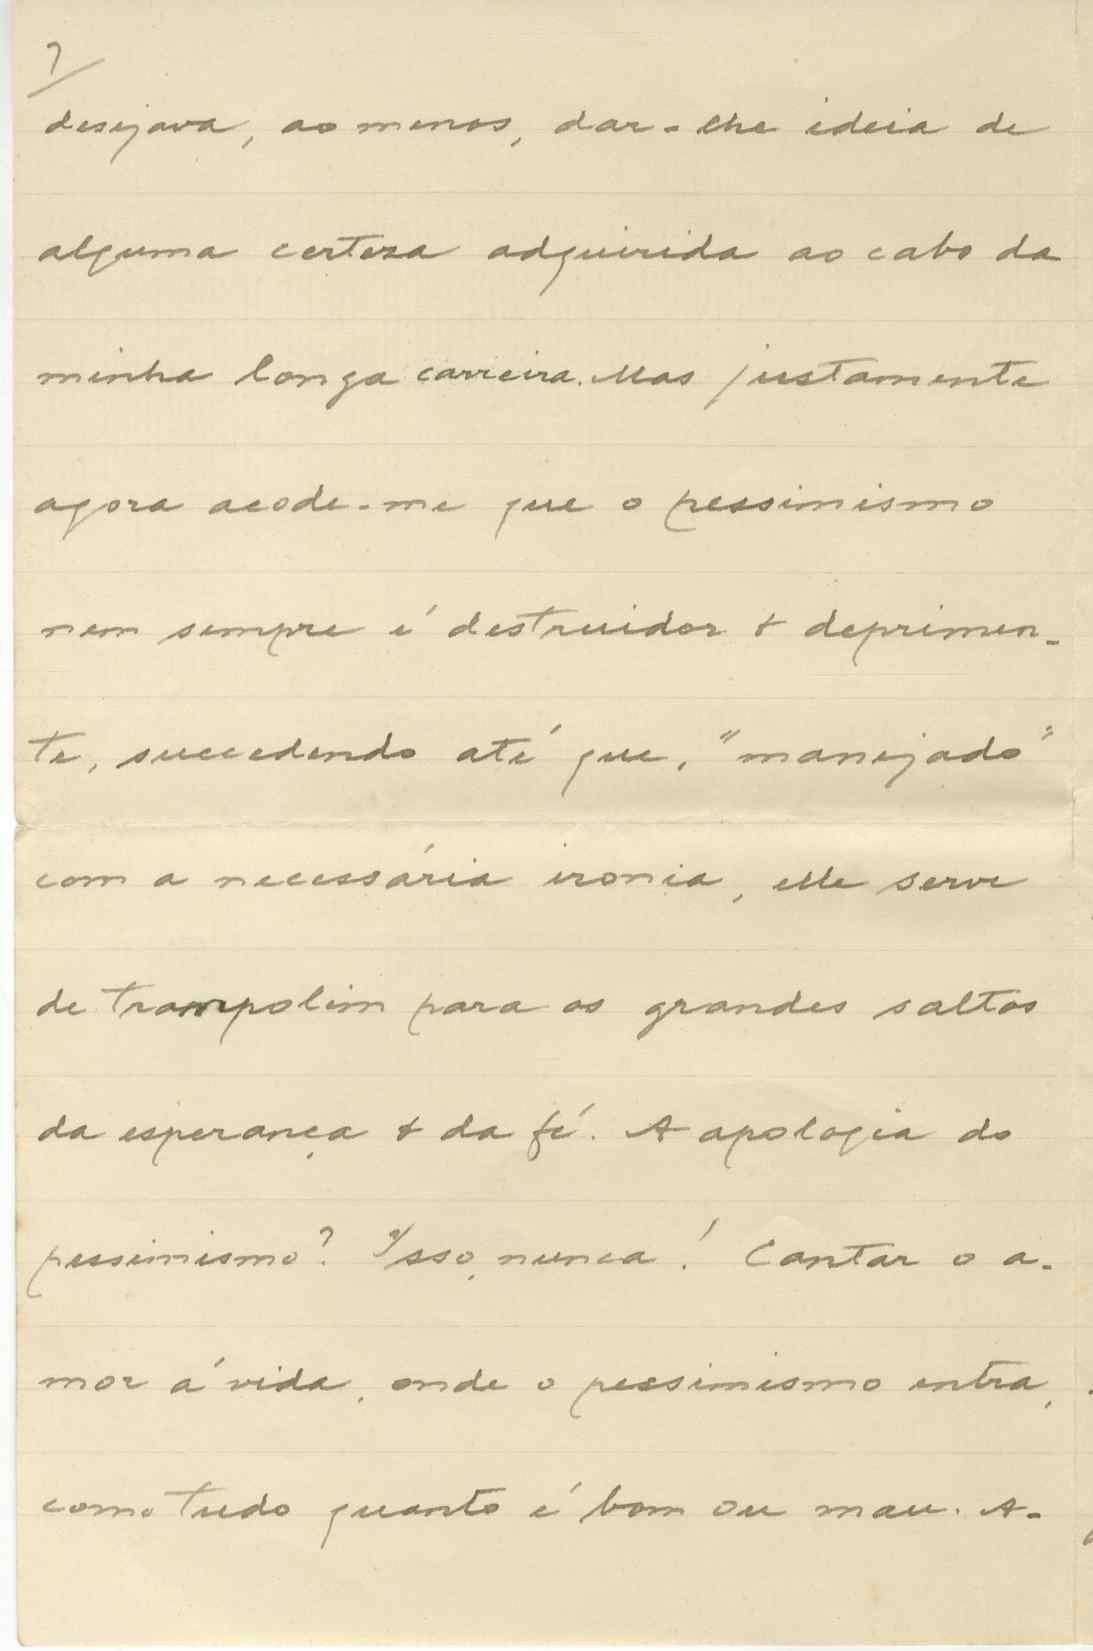 7/
desejava, ao menos, dar-lhe ideia de
alguma certeza adquirida ao cabo da
minha longa carreira. Mas justamente
agora acode-me que o pessimismo
nem sempre é destruidor & deprimen-
te, succedendo até que, "manejado"
com a necessária ironia, elle serve
de trampolim para os grandes saltos
da esperança & da fé. A apologia do
pessimismo? Isso, nunca! Cantar o a-
mor á vida, onde o pessimismo entra,
como tudo quanto é bom ou mau. A-